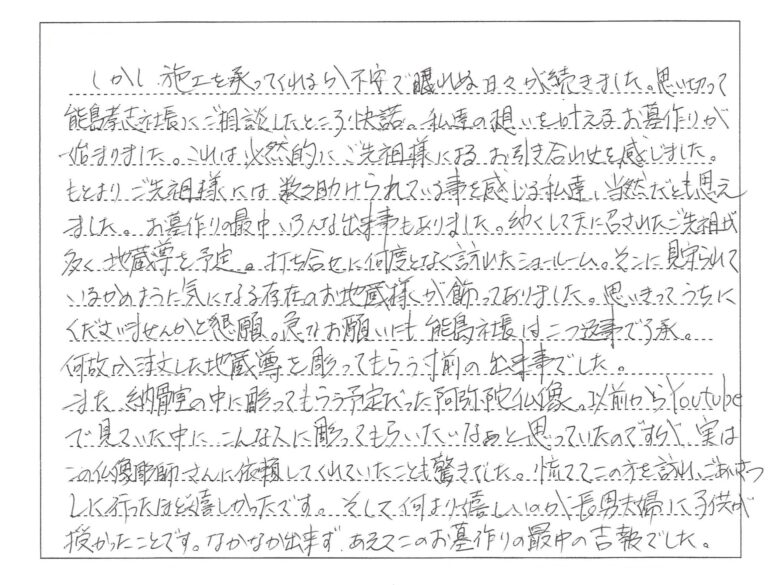 しかし、施工を承ってくれるか不安で眠れぬ日々が続きました。思い切って
能島孝志社長にご相談したところ快諾。私達の想いを叶えるお墓作りが
始まりました。これは必然的にご先祖様によるお引き合わせを感じました。
もとよりご先祖様には数々助けられている事を感じる私達、当然だとも思え
ました。お墓作りの最中、いろんな出来事もありました。幼くして天に召されたご先祖が
多く地蔵尊を予定。打ち合せに何度となく訪れたショールーム。そこに見守られて
いるかのように気になる存在のお地蔵様が飾ってありました。思いきってうちに
くださいませんかと懇願。急なお願いにも能島社長は二つ返事で了承。
何故か注文した地蔵尊を彫ってもらう寸前の出来事でした。
また、納骨室の中に彫ってもらう予定だった阿弥陀仏像。以前からYoutube
で見ていた中にこんな人に彫ってもらいたいなぁと思っていたのですが、実は
この仏像彫師さんに依頼してくれていたことも驚きでした。慌ててこの方を訪れ、ごあいさつ
しに行ったほど嬉しかったです。そして何より嬉しいのが長男夫婦に子供が
授かったことです。なかなか出来ず、あえてこのお墓作りの最中の吉報でした。